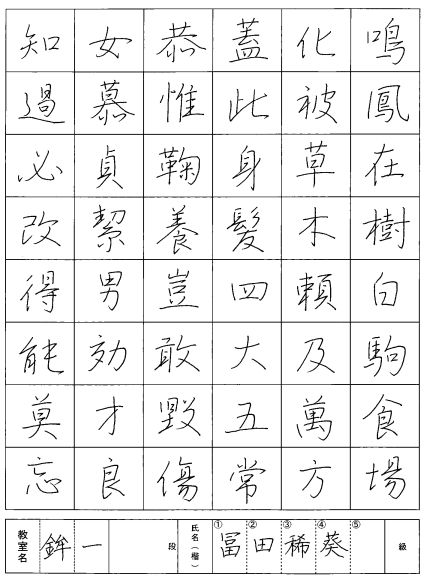 鳴鳳在樹白駒食場
化被草木頼及萬方
蓋此身髪四大五常
恭惟鞠養豈敢毀傷
女慕貞絜男効才良
知過必改得能莫忘
教室名 鉾一 段 氏名(楷) ①冨 ②田 ③稀 ④葵 ⑤ 級